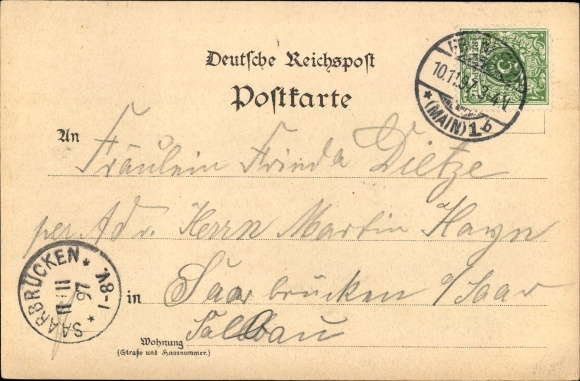 Deutsche Reichspost
Postkarte
10.11.97. 3-4 V.
* (MAIN) 1 b
An
Fräulein Frieda Dietze
per Adr. Herrn Martin Hayn
SAARBRÜCKEN * 7-8V. *
11 11
97
in Saarbrücken a/Saar
Wohnung
(Straße und Hausnummer.)
Saalbau